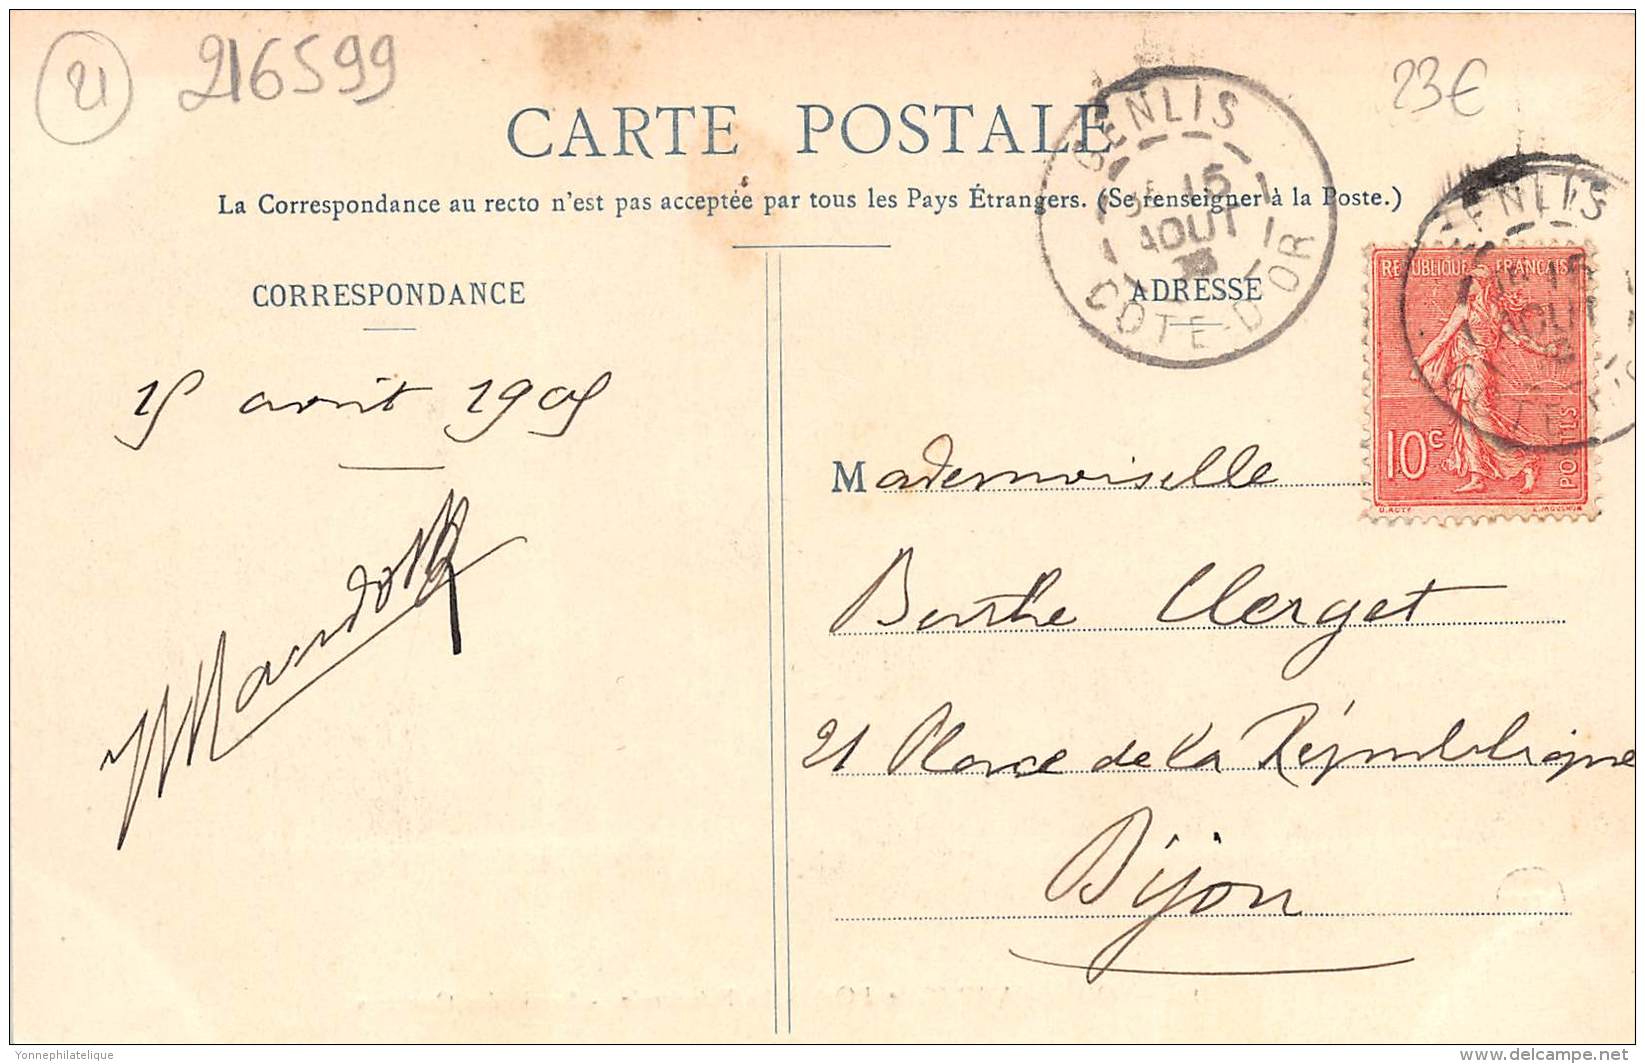 21
216599
23€
CARTE POSTALE
La Correspondance au recto n'est pas acceptée par tous les Pays Étrangers. (Se renseigner à la Poste.)
GENLIS
15
AOUT
COTE-D'OR
ENLIS
AOUT
COTE
REPUBLIQUE FRANCAISE
10c
POSTES
CORRESPONDANCE
15 août 1905
ADRESSE
Mademoiselle
Berthe Clerget
21 Place de la République
Dijon
Yonnephilatelique
www.delcampe.net